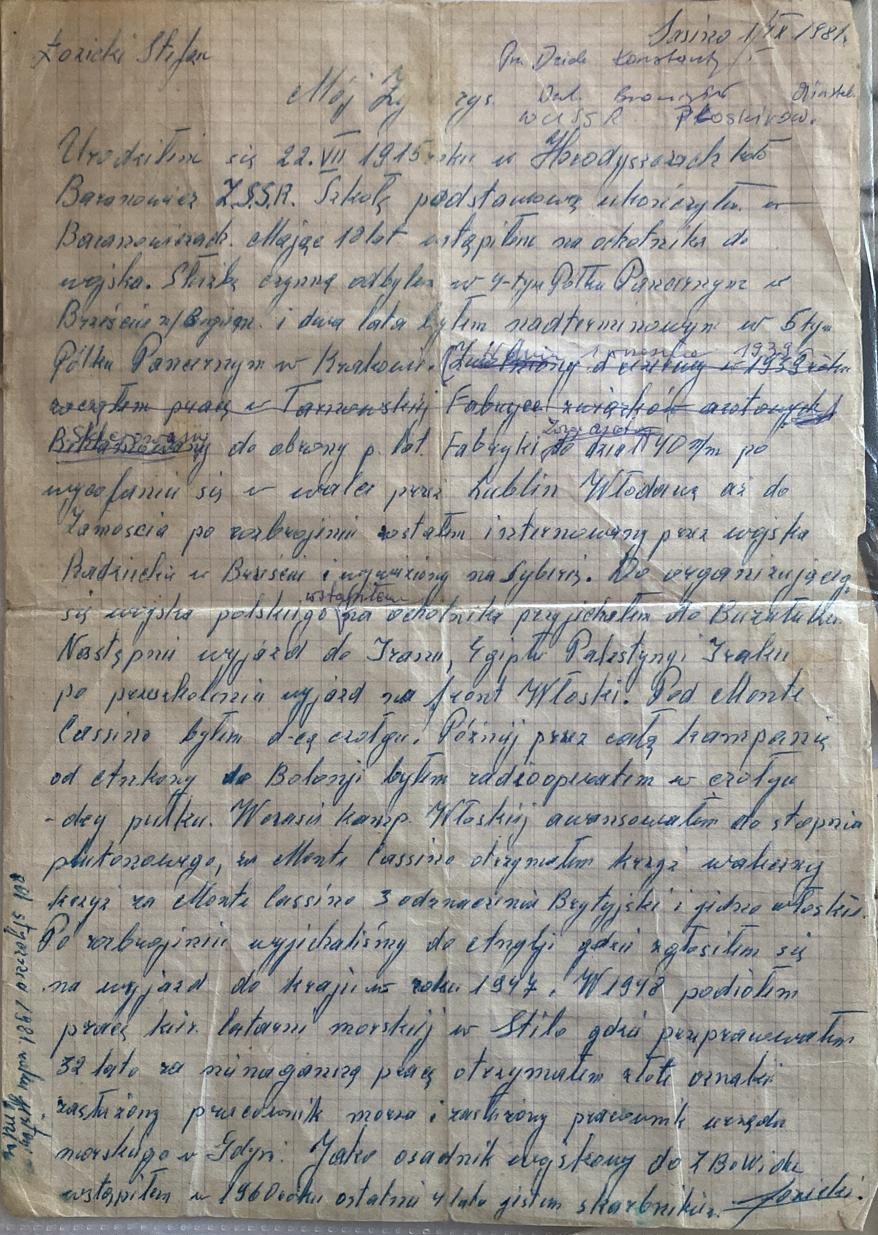 Łozicki Stefan
Sasino 1/IX 1981.
Pra Dziad Konstanty
Mój Ży rys.
w USSR Płoskirów.
Urodziłem się 22.VII 1915 roku w Horodyszczach koło
Baranowicz Z.S.S.R. Szkołę podstawową ukończyłem w
Baranowiczach. Mając 18 lat wstąpiłem na ochotnika do
wojska. Służbę czynną odbyłem w 4-tym Półku Pancernym w
Brześciu n/Bugiem. i dwa lata byłem nadterminowym w 5tym
Półku Pancernym w Krakowie. 1 września 1939
w 1939 roku
zacząłem pracę w Tarnowskiej Fabryce związków azotowych
Skierowany do obrony p. lot. Fabryki do dział 40 m/m po
wycofaniu się w walce przez Lublin Włodawę aż do
Zamościa po rozbrojeniu zostałem internowany przez wojska
Radzieckie w Brześciu i wywieziony na Syberię. Do organizującego
się wojska polskiego wstąpiłem na ochotnika przyjechałem do Buzułuku
Następnie wyjazd do Iranu, Egiptu Palestyny i Iraku
po przeszkoleniu wyjazd na front Włoski. Pod Monte
Cassino byłem d-cą czołgu. Później przez całą kampanię
od Ankony do Bolonji byłem radiooperatem w czołgu
-dcy pułku. W czasie kamp. Włoskiej awansowałem do stopnia
plutonowego, za Monte Cassino otrzymałem krzyż walecznych
krzyż za Monte Cassino 3 odznaczenia Brytyjski i jedno włoskie.
Po rozbrojeniu wyjechaliśmy do Anglji gdzie zgłosiłem się
na wyjazd do kraju w roku 1947. W 1948 podjołem
pracę kier. latarni morskiej w Stilo gdzie przepracowałem
32 lata za nienaganną pracę otrzymałem złote oznaki
zasłużony pracownik morza i zasłużony pracownik urzędu
morskiego w Gdyni. Jako osadnik wojskowy do ZBoWidu
wstąpiłem w 1960 roku ostatnie 4 lata jestem skarbnikiem. Łozicki.
od stycznia 1981